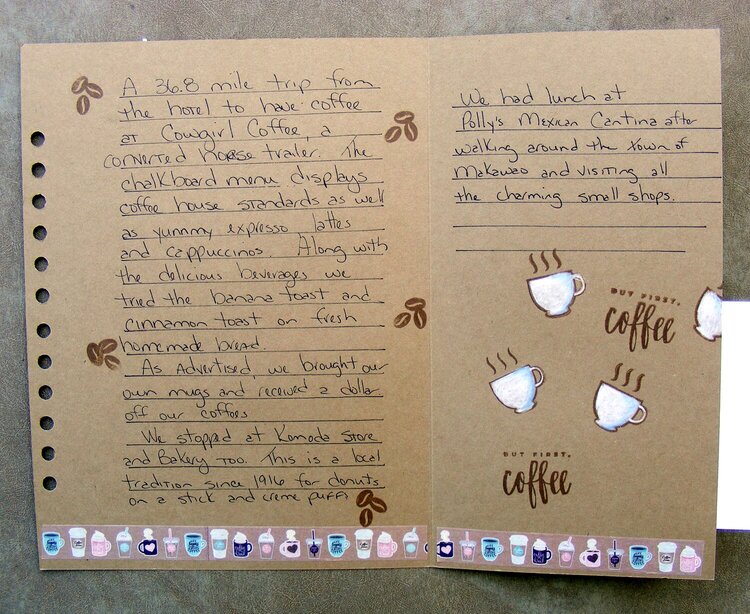 A 36.8 mile trip from
the hotel to have coffee
at Cowgirl Coffee, a
converted horse trailer. The
chalkboard menu displays
coffee house standards as well
as yummy expresso, lattes
and cappuccinos. Along with
the delicious beverages we
tried the banana toast and
cinnamon toast on fresh
homemade bread.
As Advertised, we brought our
own mugs and received a dollar
off our coffees
We stopped at Komoda Store
and Bakery too. This is a local
tradition since 1916 for donuts
on a stick and creme puffs
We had lunch at
Polly's Mexican Cantina after
walking around the town of
Makawao and visiting all
the charming small shops.
BUT FIRST,
coffee
BUT FIRST,
coffee